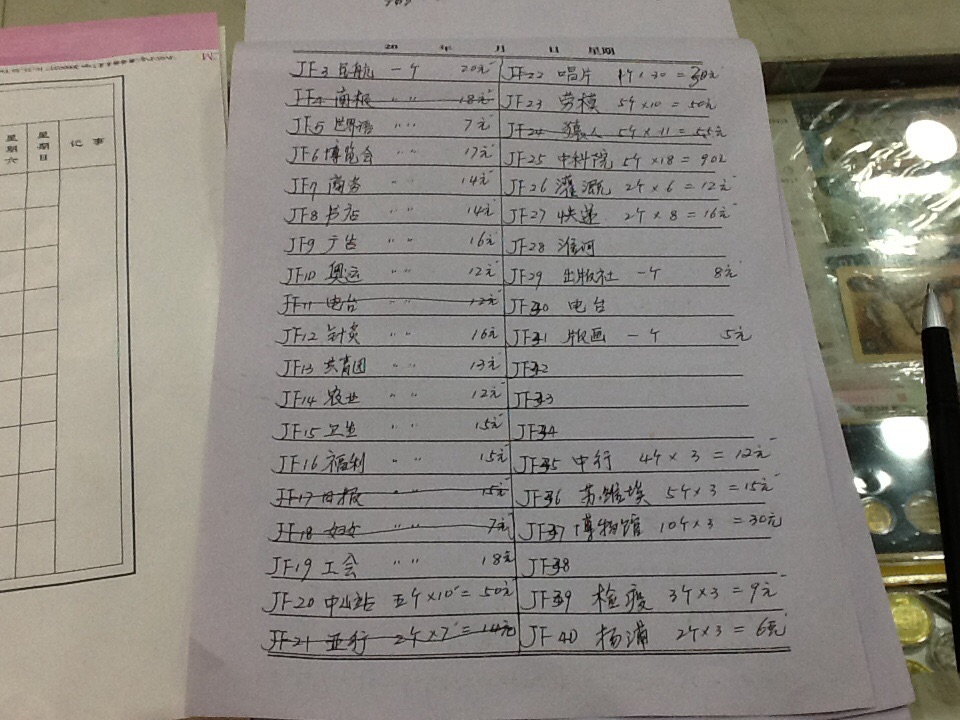 20 年 月 日 星期
JF3 民航 一个 20元
JF4 商报 〃 〃 18元
JF5 世界语 〃 〃 7元
JF6 博览会 〃 〃 17元
JF7 商务 〃 〃 14元
JF8 书店 〃 〃 14元
JF9 广告 〃 〃 16元
JF10 奥运 〃 〃 12元
JF11 电台 〃 〃 12元
JF12 针灸 〃 〃 16元
JF13 共青团 〃 〃 13元
JF14 农业 〃 〃 12元
JF15 卫生 〃 〃 15元
JF16 福利 〃 〃 15元
JF17 日报 〃 〃 15元
JF18 妇女 〃 〃 7元
JF19 工会 〃 〃 18元
JF20 中山站 五个×10 = 50元
JF21 亚行 2个×7 = 14元
JF22 唱片 1个×30 = 30元
JF23 劳模 5个×10 = 50元
JF24 猿人 5个×11 = 55元
JF25 中科院 5个×18 = 90元
JF26 灌溉 2个×6 = 12元
JF27 快递 2个×8 = 16元
JF28 淮河
JF29 出版社 一个 8元
JF30 电台
JF31 版画 一个 5元
JF32
JF33
JF34
JF35 中行 4个×3 = 12元
JF36 苏维埃 5个×3 = 15元
JF37 博物馆 10个×3 = 30元
JF38
JF39 检疫 3个×3 = 9元
JF40 杨浦 2个×3 = 6元
星期六
星期日
记事